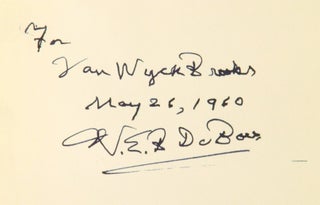 For
Van Wyck Brooks
May 26, 1960
W.E.B DuBois